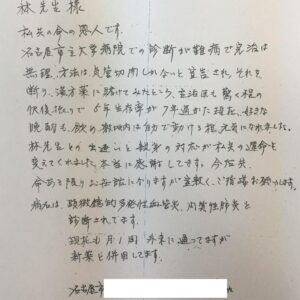 林先生様
私共の命の恩人です。
名古屋市立大学病院での診断が難病で完治は
無理、方法は気管切開しかないと宣告され、それを
断り、漢方薬に賭けてみたところ、主治医も驚く程の
快復振りで5年生存率が7年過ぎた現在、好きな
晩酌も飲め、敷地内は自力で動ける程元気になれました。
林先生との出逢いと親身の対応が私共の運命を
変えてくれました。本当に感謝してます。今後共、
命ある限りお世話になりますが宜敷く、ご指導お願いします。
病名は、顕微鏡的多発性血管炎、間質性肺炎と
診断されてます。
現在も月1回外来に通ってますが
新薬と併用してます。
名古屋市